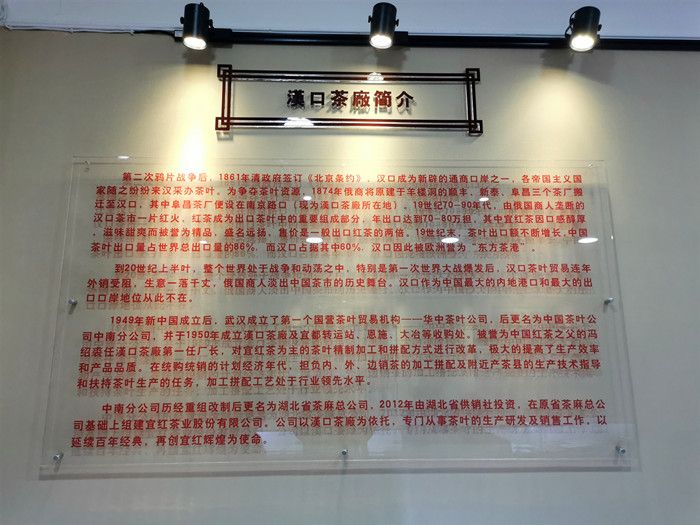 漢口茶廠简介
第二次鸦片战争后，1861年清政府签订《北京条约》，汉口成为新辟的通商口岸之一，各帝国主义国
家随之纷纷来汉采办茶叶。为争夺茶叶资源，1874年俄商将原建于羊楼洞的顺丰、新泰、阜昌三个茶厂搬
迁至汉口，其中阜昌茶厂便设在南京路口（现为漢口茶廠所在地）。19世纪70-90年代，由俄国商人垄断的
汉口茶市一片红火，红茶成为出口茶叶中的重要组成部分，年出口达到70-80万担，其中宜红茶因口感醇厚
，滋味甜爽而被誉为精品，盛名远扬，售价是一般出口红茶的两倍，19世纪末，茶叶出口额不断增长，中国
茶叶出口量占世界总出口量的86%，而汉口占据其中60%，汉口因此被欧洲誉为“东方茶港”。
到20世纪上半叶，整个世界处于战争和动荡之中，特别是第一次世界大战爆发后，汉口茶叶贸易连年
外销受阻，生意一落千丈，俄国商人淡出中国茶市的历史舞台。汉口作为中国最大的内地港口和最大的出
口口岸地位从此不在。
1949年新中国成立后，武汉成立了第一个国营茶叶贸易机构——华中茶叶公司，后更名为中国茶叶公
司中南分公司，并于1950年成立漢口茶廠及宜都转运站、恩施、大冶等收购处。被誉为中国红茶之父的冯
绍裘任漢口茶廠第一任厂长，对宜红茶为主的茶叶精制加工和拼配方式进行改革，极大的提高了生产效率
和产品品质。在统购统销的计划经济年代，担负内、外、边销茶的加工拼配及附近产茶县的生产技术指导
和扶持茶叶生产的任务，加工拼配工艺处于行业领先水平。
中南分公司历经重组改制后更名为湖北省茶麻总公司，2012年由湖北省供销社投资，在原省茶麻总公
司基础上组建宜红茶业股份有限公司。公司以漢口茶廠为依托，专门从事茶叶的生产研发及销售工作，以
延续百年经典，再创宜红辉煌为使命。